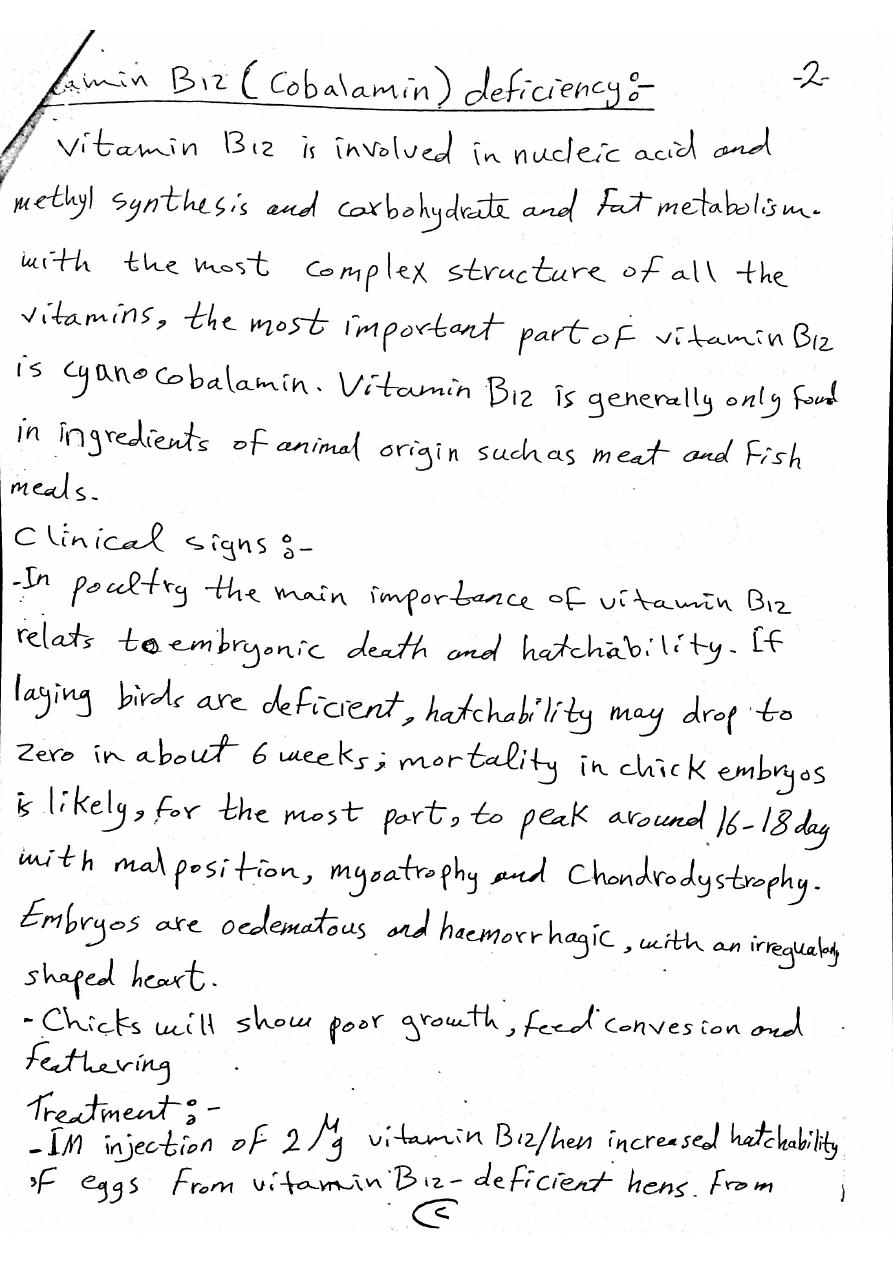 amin B12 (Cobalamin) deficiency:-
-2-
Vitamin B12 is involved in nucleic acid and
methyl synthesis and carbohydrate and Fat metabolism.
with the most complex structure of all the
vitamins, the most important part of vitamin B12
is cyanocobalamin. Vitamin B12 is generally only found
in ingredients of animal origin such as meat and Fish
meals.
Clinical signs :-
-In poultry the main importance of vitamin B12
relats to embryonic death and hatchability. If
laying birds are deficient, hatchability may drop to
Zero in about 6 weeks; mortality in chick embryos
is likely, for the most part, to peak around 16-18 day
with malposition, myoatrophy and Chondrodystrophy.
Embryos are oedematous and haemorrhagic, with an
shaped heart.
- Chicks will show poor growth, feed convesion and
feathering
Treatment :-
-IM injection of 2 Mg vitamin B12/hen increased hatchability
of eggs From vitamin B12-deficient hens. From